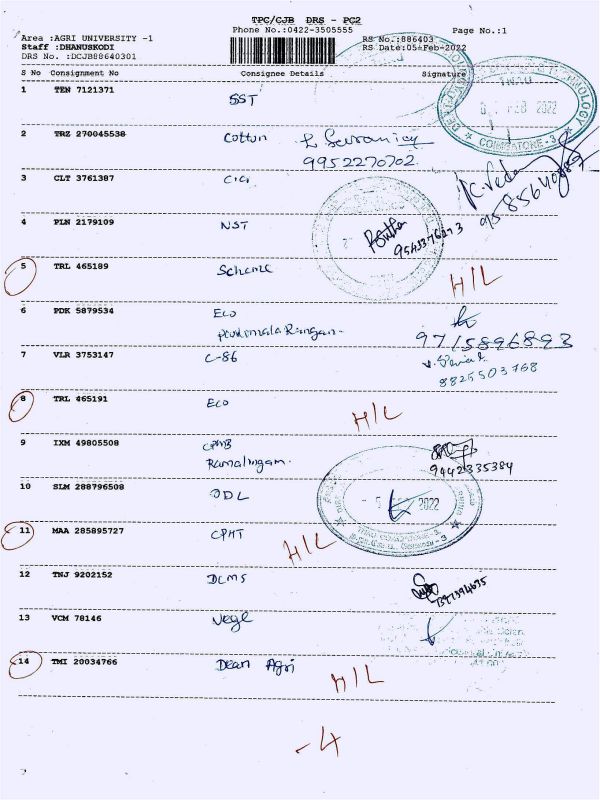 TPC/CJB DRS - PC2
Phone No.:0422-3505555
Page No.:1
Area :AGRI UNIVERSITY -1
RS No.:886403
Staff :DHANUSKODI
RS Date:05-Feb-2022
DRS No. :DCJB88640301
S No Consignment No Consignee Details Signature
1 TEN 7121371 SST
FEB 2022
COIMBATORE - 3
2 TRZ 270045538 Cotton
9952270702
3 CLT 3761387
9585640989
4 PLN 2179109 NST
5 TRL 465189 Scheme H/L
6 PDK 5879534 Eco
9715896893
7 VLR 3753147 C-86
8825503768
8 TRL 465191 Eco H/L
9 IXM 49805508 CPMB
Ramalingam.
9442335384
10 SLM 288796508 ODL
2022
11 MAA 285895727 CPHT H/L
12 TNJ 9202152 DCMS
13 VCM 78146 Vege
14 TMI 20034766 Dean Agri H/L
-4